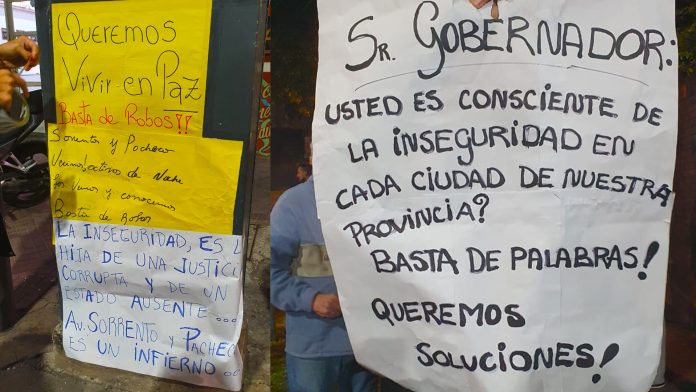 Queremos
Vivir en Paz
Basta de Robos!!
Sorrento y Pacheco
Vecinos activos de Noche
los vimos y conocemos
Basta de Robos
LA INSEGURIDAD, ES L
HIJA DE UNA JUSTICI
CORRUPTA Y DE UN
ESTADO AUSENTE...
AV. SORRENTO Y PACHEC
ES UN INFIERNO..
SR. GOBERNADOR:
USTED ES CONSCIENTE DE
LA INSEGURIDAD EN
CADA CIUDAD DE NUESTRA
PROVINCIA?
BASTA DE PALABRAS!
QUEREMOS
SOLUCIONES!